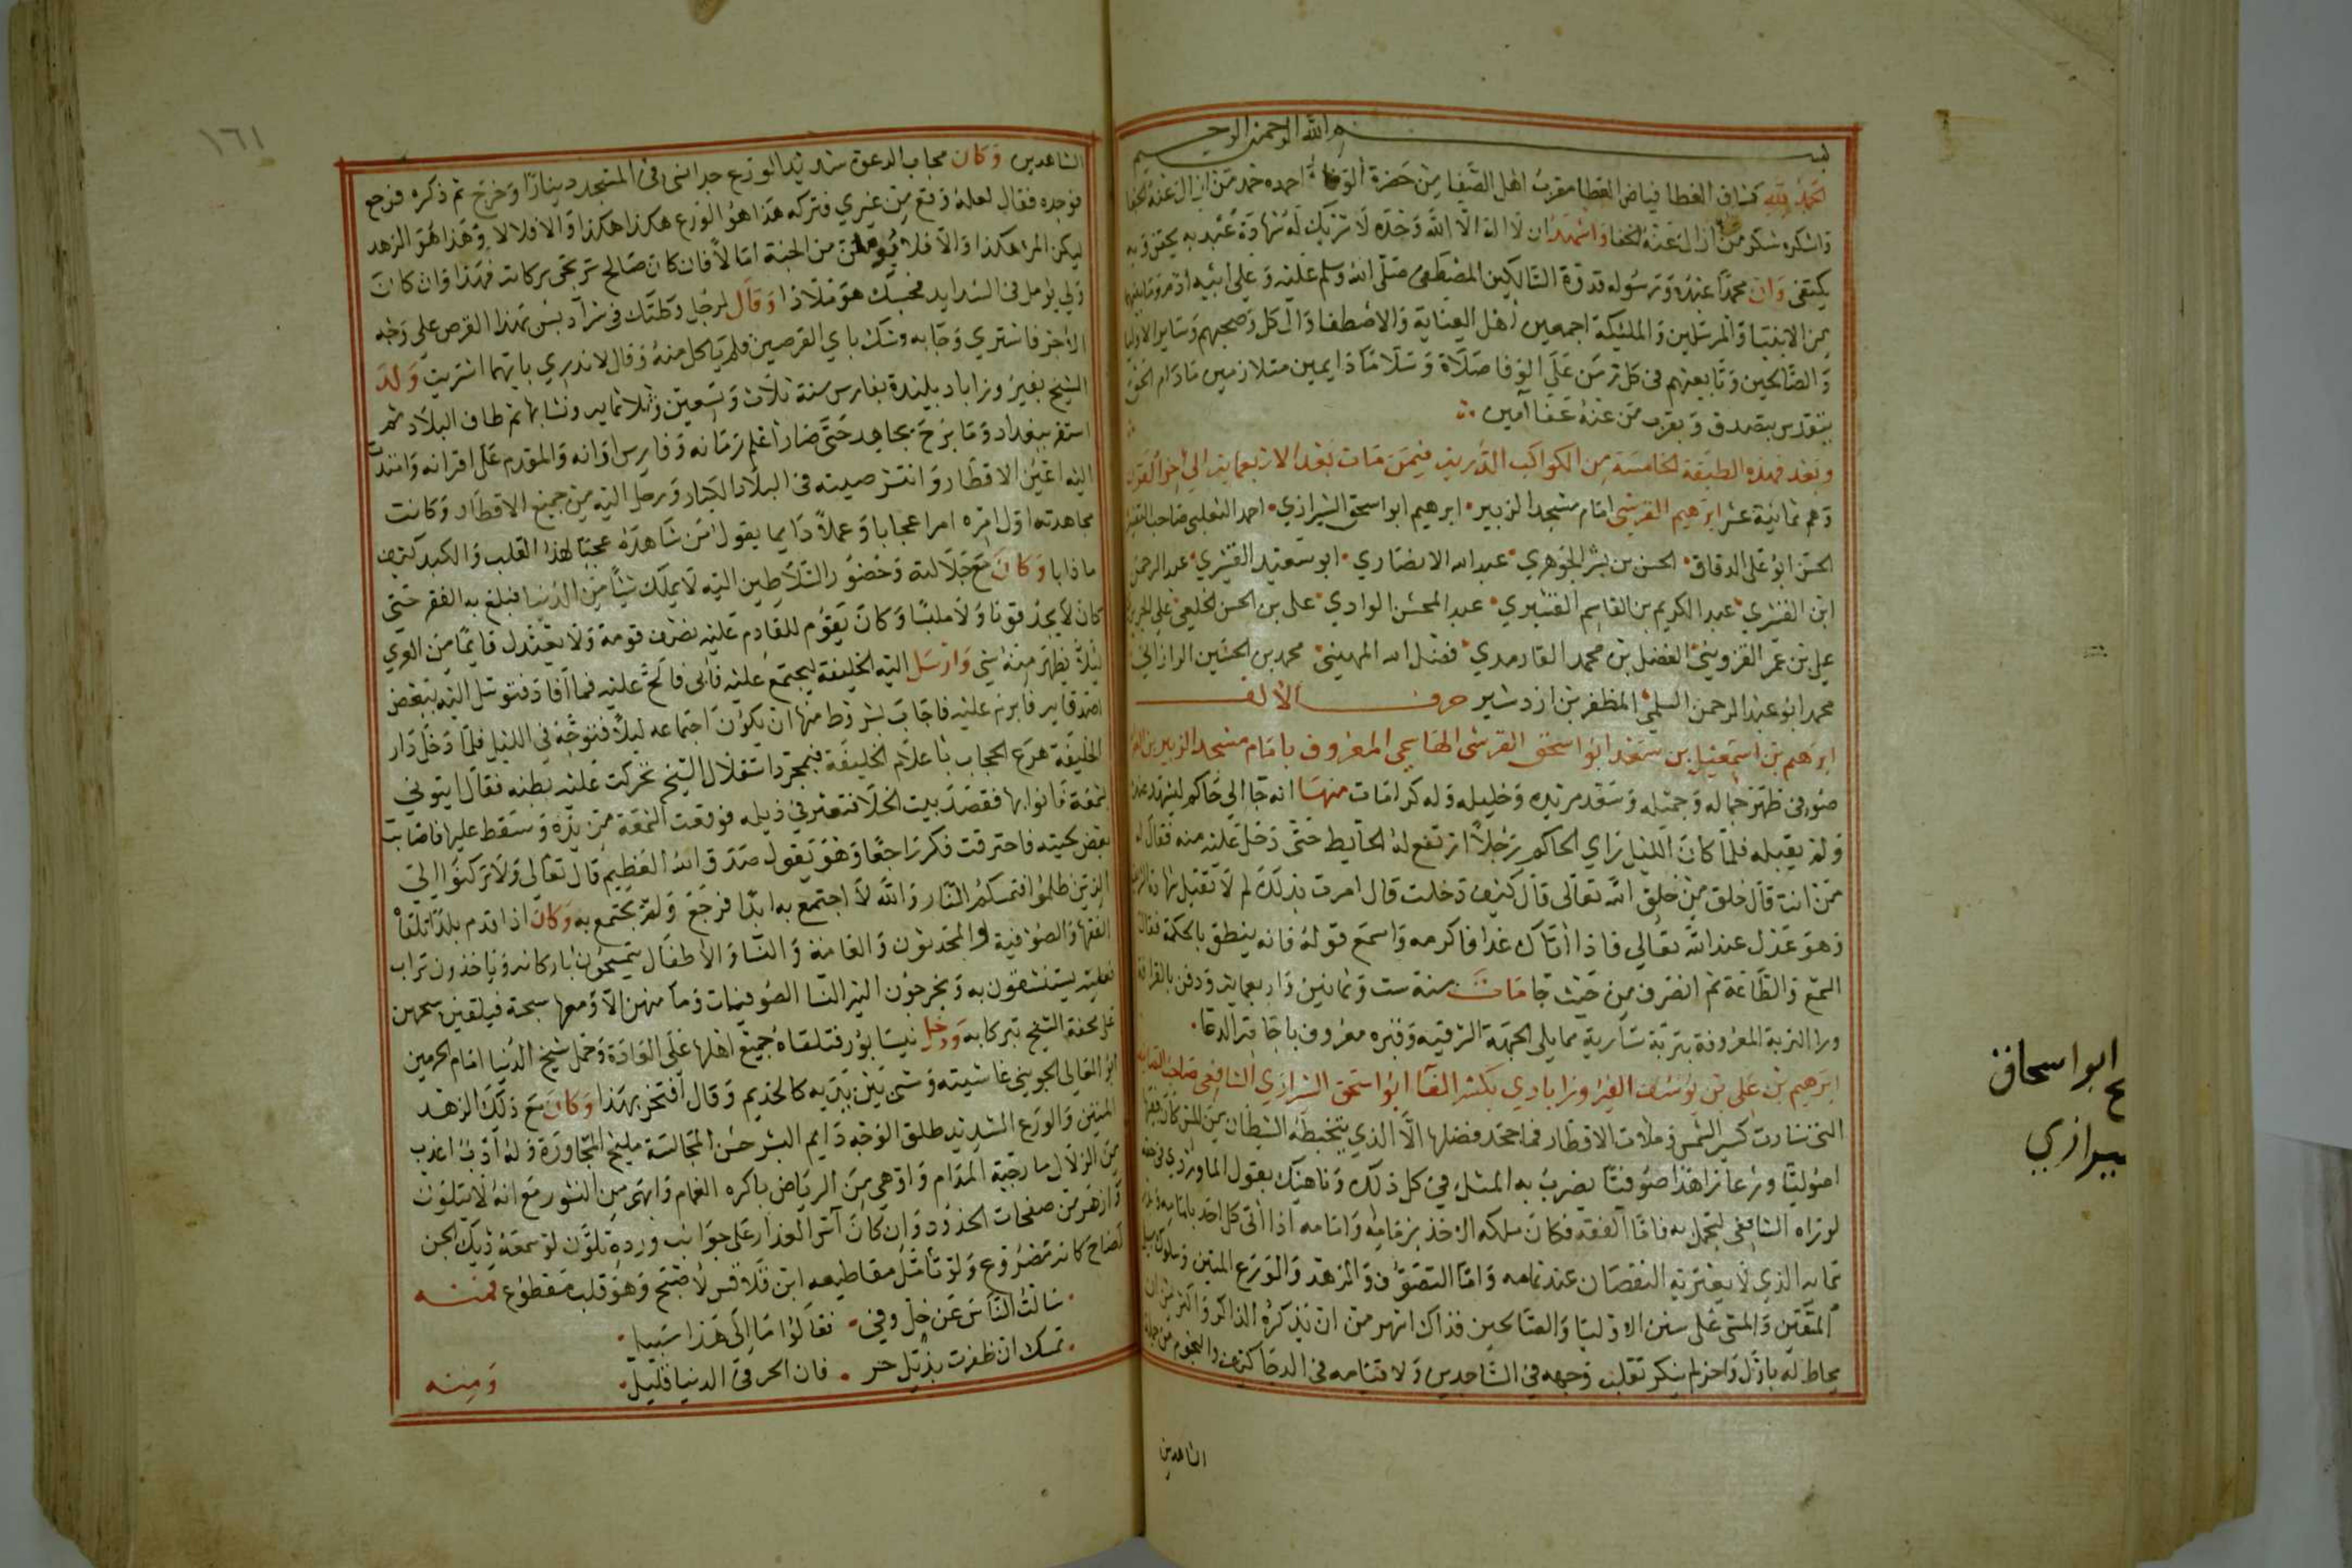 بسم الله الرحمن الرحيم
الحمد لله كشاف الغطا فياض العطا مقرب اهل الصفا من حضرة الوفا احمده حمد من ازال عنه الخفا
واشكره شكر من ازال عنه الخفا واشهد ان لا اله الا الله وحده لا شريك له شهادة عبد به
يكتفى وان محمدا عبده ورسوله قدوة السالكين المصطفى صلى الله وسلم عليه وعلى ابيه ادم وما بينهما
من الانبيا والمرسلين والمليكة اجمعين اهل العناية والاصطفا والى كل وصحبهم وساير الاوليا
والصالحين وتابعيهم في كل زمن على الوفا صلاة وسلاما دايمين متلازمين مادام الحق
يتصدق وبقرب من عنه عفا آمين
وبعد فهذه الطبقة الخامسة من الكواكب الدرية فيمن مات بعد الاربعماية الى اخر القرن
وهم ثمانية عشر ابرهيم القرشي امام مسجد الزبير ابرهيم ابو اسحق الشيرازي احمد الثعلبي صاحب التفسير
الحسن ابو على الدقاق الحسن بن بشر الجوهري عبد الله الانصاري ابو سعيد القشيري عبد الرحمن
ابن القشري عبد الكريم بن القاسم القشيري عبد المحسن الوادي على بن الحسن الخلعي على
علي بن عمر القزويني الفضل بن محمد الفارمدي فضل الله المهيني محمد بن الحسين الرازاني
محمد ابو عبد الرحمن السلمي المظفر بن ازدشير حرف الالف
ابرهيم بن اسمعيل بن سعد ابو اسحق القرشي الهاشمي المعروف بامام مسجد الزبير
صوفي ظهر جماله وجميله وسعد مريده وخليله وله كرامات منها انه جا الى حاكم ليشهد عنده
ولم يقبله فلما كان الليل راي الحاكم رجلا ارتفع له الحايط حتى دخل عليه منه فقال له
من انت قال خلق من خلق الله تعالى قال كيف دخلت قال امرت بذلك لم لا تقبل شهادة
وهو عدل عند الله تعالى فاذا اتاك غدا فاكرمه واسمع قوله فانه ينطق بالحكمة فقال
السمع والطاعة ثم انصرف من حيث جا مات سنة ست وثمانين واربعماية ودفن بالقرافة
ورا التربة المعروفة بتربة سارية مما يلى الجهة الشرقية وقبره معروف باجابة الدعا
ابرهيم بن على بن يوسف الفيروزابادي بكسر الفا ابو اسحق الشيرازي الشافعي صاحب
التى سارت كسير الشمس وملات الاقطار فما جحد فضلها الا الذي يتخبطه الشيطان من المس كان فقيها
اصوليا ورعا زاهدا صوفيا يضرب به المثل في كل ذلك وناهيك بقول الماوردي في حقه
لو راه الشافعى لتجمل به فاما الفقه فكان ملكه الاخذ بزمامه وامامه اذا اتى كل احد بامامه
تمامه الذي لا يعتريه النقصان عند تمامه واما التصوف والزهد والورع المتين وسلوك سبيل
المتقين والمشى على سنن الاوليا والصالحين فذاك اشهر من ان يذكره الذاكر واكثر من ان
يحاط له باول واخر لم ينكر تقلب وجهه في الساجدين ولا قيامه في الدجا كيف والنجوم من جملة
الشاهدين
ابو اسحاق
يرازي
١٦١
الشاهدين وكان مجاب الدعوة شديد الورع جدا نسى في المسجد دينارا وخرج ثم ذكره فرجع
فوجده فقال لعله وقع من غيري فتركه هذا هو الورع هكذا هكذا والا فلا لا وهذا هو الزهد
ليكن المرا هكذا والا فلا من الجنة امالا فان كان صالح ترتجى بركاته فهذا وان كان
ولي يومل في الشدايد فحسبك هو ملاذا وقال لرجل وكلتك في شرآ دبس بهذا القرص على وجه
الاخر فاشترى وجا به وشك باي القرصين فلم ياكل منه وقال لا ندري بايهما اشتريت ولد
الشيخ بفيروزاباد بليدة بفارس سنة ثلاث وتسعين وثلاثماية ونشا بها ثم طاف البلاد ثم
استقر ببغداد وما برح يجاهد حتى صار اعلم زمانه وفارس اوانه والمقدم على اقرانه وامتدت
اليه اعين الاقطار وانتشر صيته في البلاد الكبار ورحل اليه من جميع الاقطار وكانت
مجاهدته اول امره امرا عجابا وعملا دايما يقول من شاهده عجبا لهذا القلب والكبد كيف
ماذابا وكان مع جلالته وخضوع السلاطين اليه لا يملك شيا من الدنيا فبلغ به الفقر حتى
كان لا يجد قوتا ولا ملبسا وكان يقوم للقادم عليه نصف قومة ولا يعتدل قايما من العري
ليلا يظهر منه شي وارسل اليه الخليفة ليجتمع عليه فابى فالح عليه فما افاد فتوسل اليه ببعض
اصدقايه فابرم عليه فاجاب بشروط منها ان يكون اجتماعه ليلا فتوجه في الليل فلما دخل دار
الخليفة هرع الحجاب باعلام الخليفة فبمجرد استقلال الشيخ تحركت عليه بطنه فقال ايتوني
بشمعة فاتوا بها فقصد بيت الخلا فتعثر في ذيله فوقعت الشمعة من يده وسقط عليها فاصابت
بعض لحيته فاحترقت فكر راجعا وهو يقول صدق الله العظيم قال تعالى ولا تركنوا الى
الذين ظلموا فتمسكم النار والله لا اجتمع به ابدا فرجع ولم يجتمع به وكان اذا قدم بلدا تلقاه
الفقها والصوفية والمحدثون والعامة والنسا والاطفال يتمسحون باركانه وياخذون تراب
نعليه يستشفون به ويخرجون اليه النسا الصوفيات وما منهن الا ومعها سبحة فيلقين سبحهن
على محفة الشيخ تبركا به ودخل نيسابور فتلقاه جميع اهلها على العادة وحمل شيخ الدنيا امام الحرمين
ابو المعالي الجويني غاشيته ومشى بين يديه كالخديم وقال افتخر بهذا وكان مع ذلك الزهد
المتين والورع الشديد طلق الوجه دايم البشر حسن المجالسة مليح المجاورة وله ادب اعذب
من الزلال مازجته المدام وازهى من الرياض باكره الغمام وابهى من النور مع انه لا يتلون
وازهر من صفحات الخدود وان كان آس العذار على جوانب ورده تلون لو سمعه ديك الجن
لصاح كانه مصروع ولو تامل مقاطيعه ابن قلاقس لاصبح وهو قلب مقطوع فمنه
سالت الناس عن خل وفي فقالوا ما الى هذا سبيل
تمسك ان ظفرت بذيل حر فان الحر في الدنيا قليل
ومنه